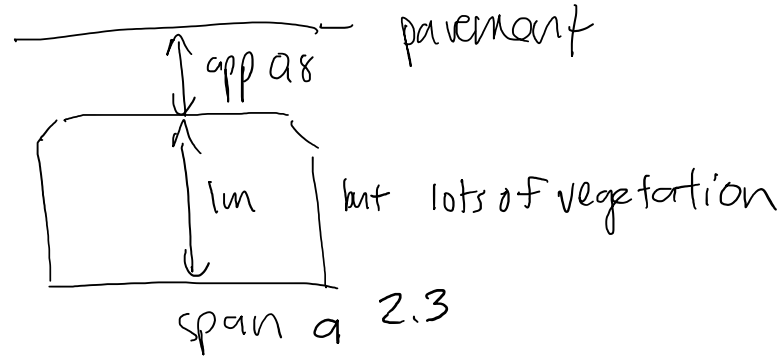 pavement
app 0.8
1m
but lots of vegetation
span a 2.3